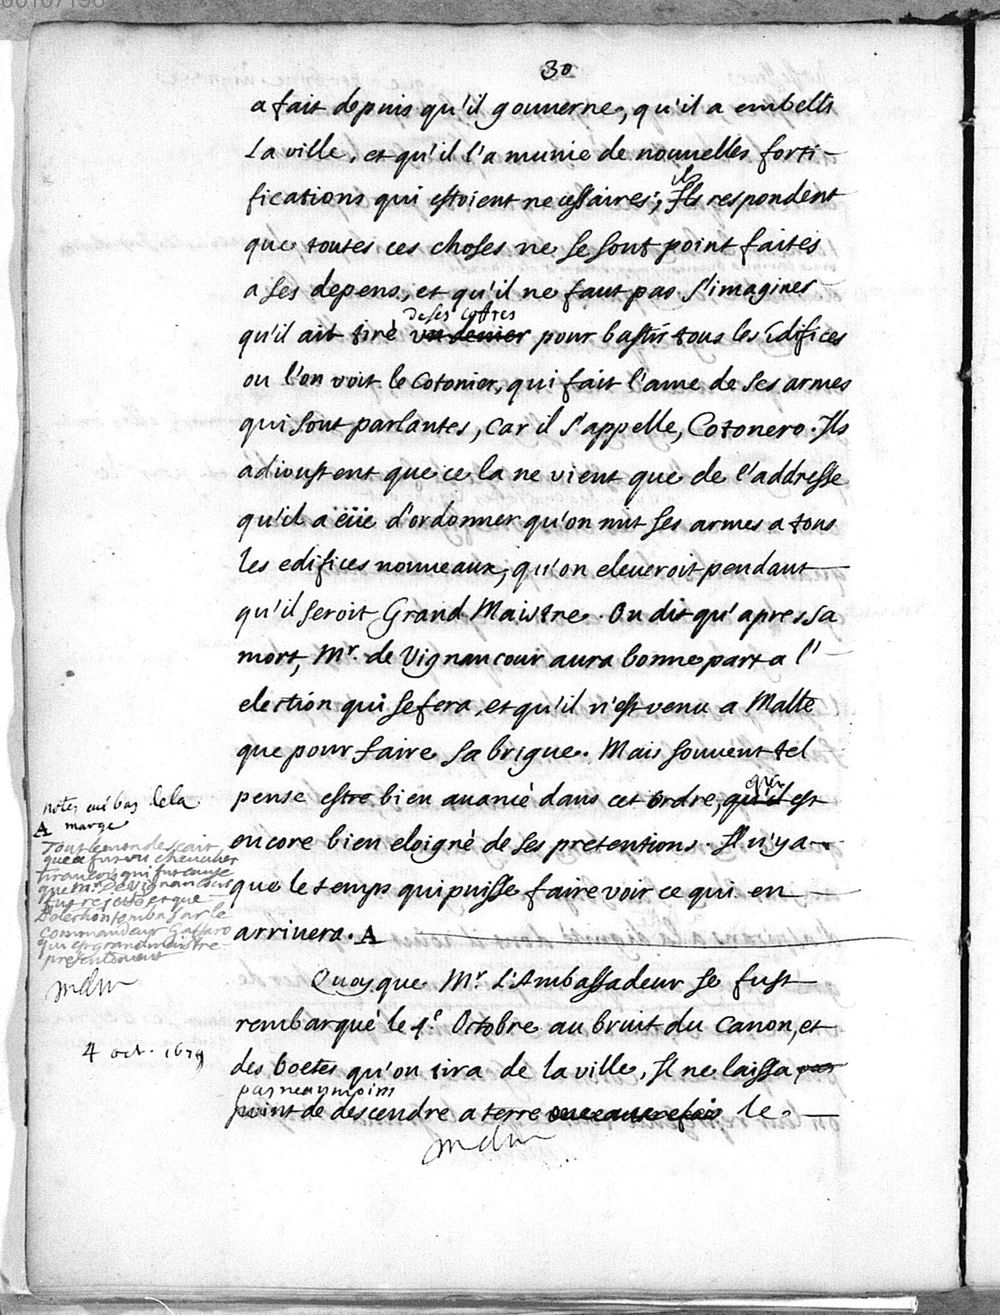 30
a fait depuis qu'il gouuerne, qu'il a embelli
La ville, et qu'il l'a munie de nouuelles forti-
fications qui estoient necessaires; Ils respondent
que toutes ces choses ne se sont point faites
a ses depens, et qu'il ne faut pas s'imaginer
de ses cofres
qu'il ait tiré un denier pour bastir tous les Edifices
ou l'on voit le Cotonier, qui fait l'ame de ses armes
qui sont parlantes, car il s'appelle, Cotonero. Ils
adioustent que cela ne vient que de l'addresse
qu'il a ëüe d'ordonner qu'on mit ses armes a tous
les edifices nouueaux, qu'on eleueroit pendant
qu'il seroit Grand Maistre. On dit qu'apres sa
mort, Mr. de Vignancour aura bonne part a l'
election qui se fera, et qu'il n'est venu a Malte
que pour faire sa brigue. Mais souuent tel
pense estre bien auancé dans cet Ordre, qu'il est
encore bien eloigné de ses pretentions. Il n'y a
que le temps qui puisse faire voir ce qui en
arriuera. A
notes au bas de la
A marge
Tout le monde scait
que ce fut un cheualier
francois qui fut cause
que Mr. De Vignancour
fut rejetté et que
l'election tomba sur le
Commandeur Caffaro
qui est grand maistre
presentement
Quoy que Mr. L'Ambassadeur se fust
rembarqué le 4e. Octobre au bruit du canon, et
4 oct. 1679
des boetes qu'on tira de la ville, Il ne laissa pas
pas neanmoins
point de descendre a terre une autre fois le